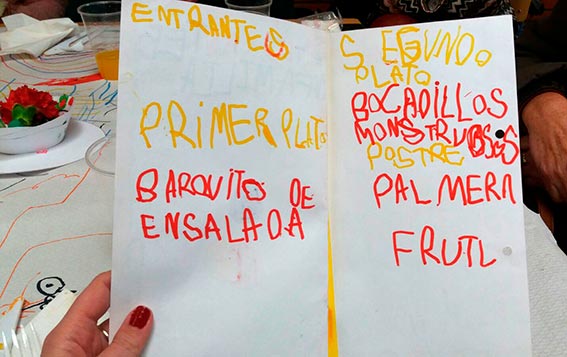 ENTRANTES
PRIMER PLATO
BARQUITO DE
ENSALADA
SEGUNDO
PLATO
BOCADILLOS
MONSTRUOSOS
POSTRE
PALMERA
FRUTL